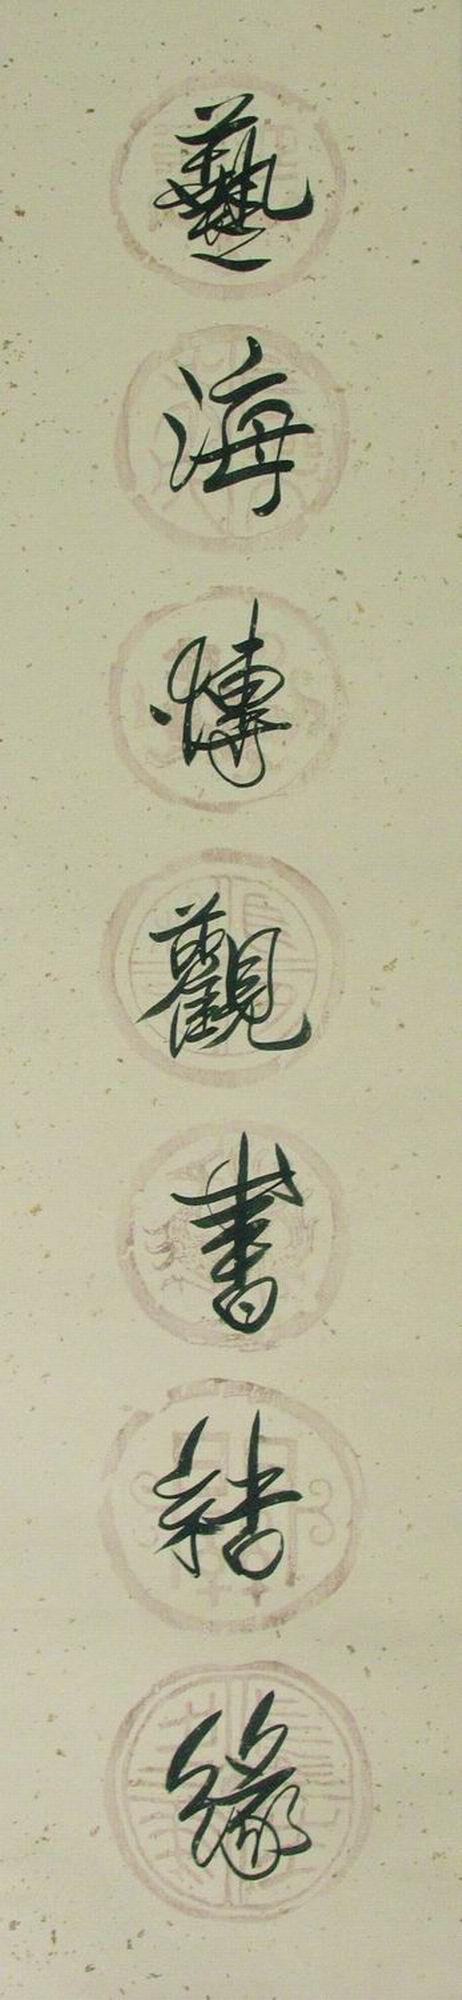 藝海博觀書結緣